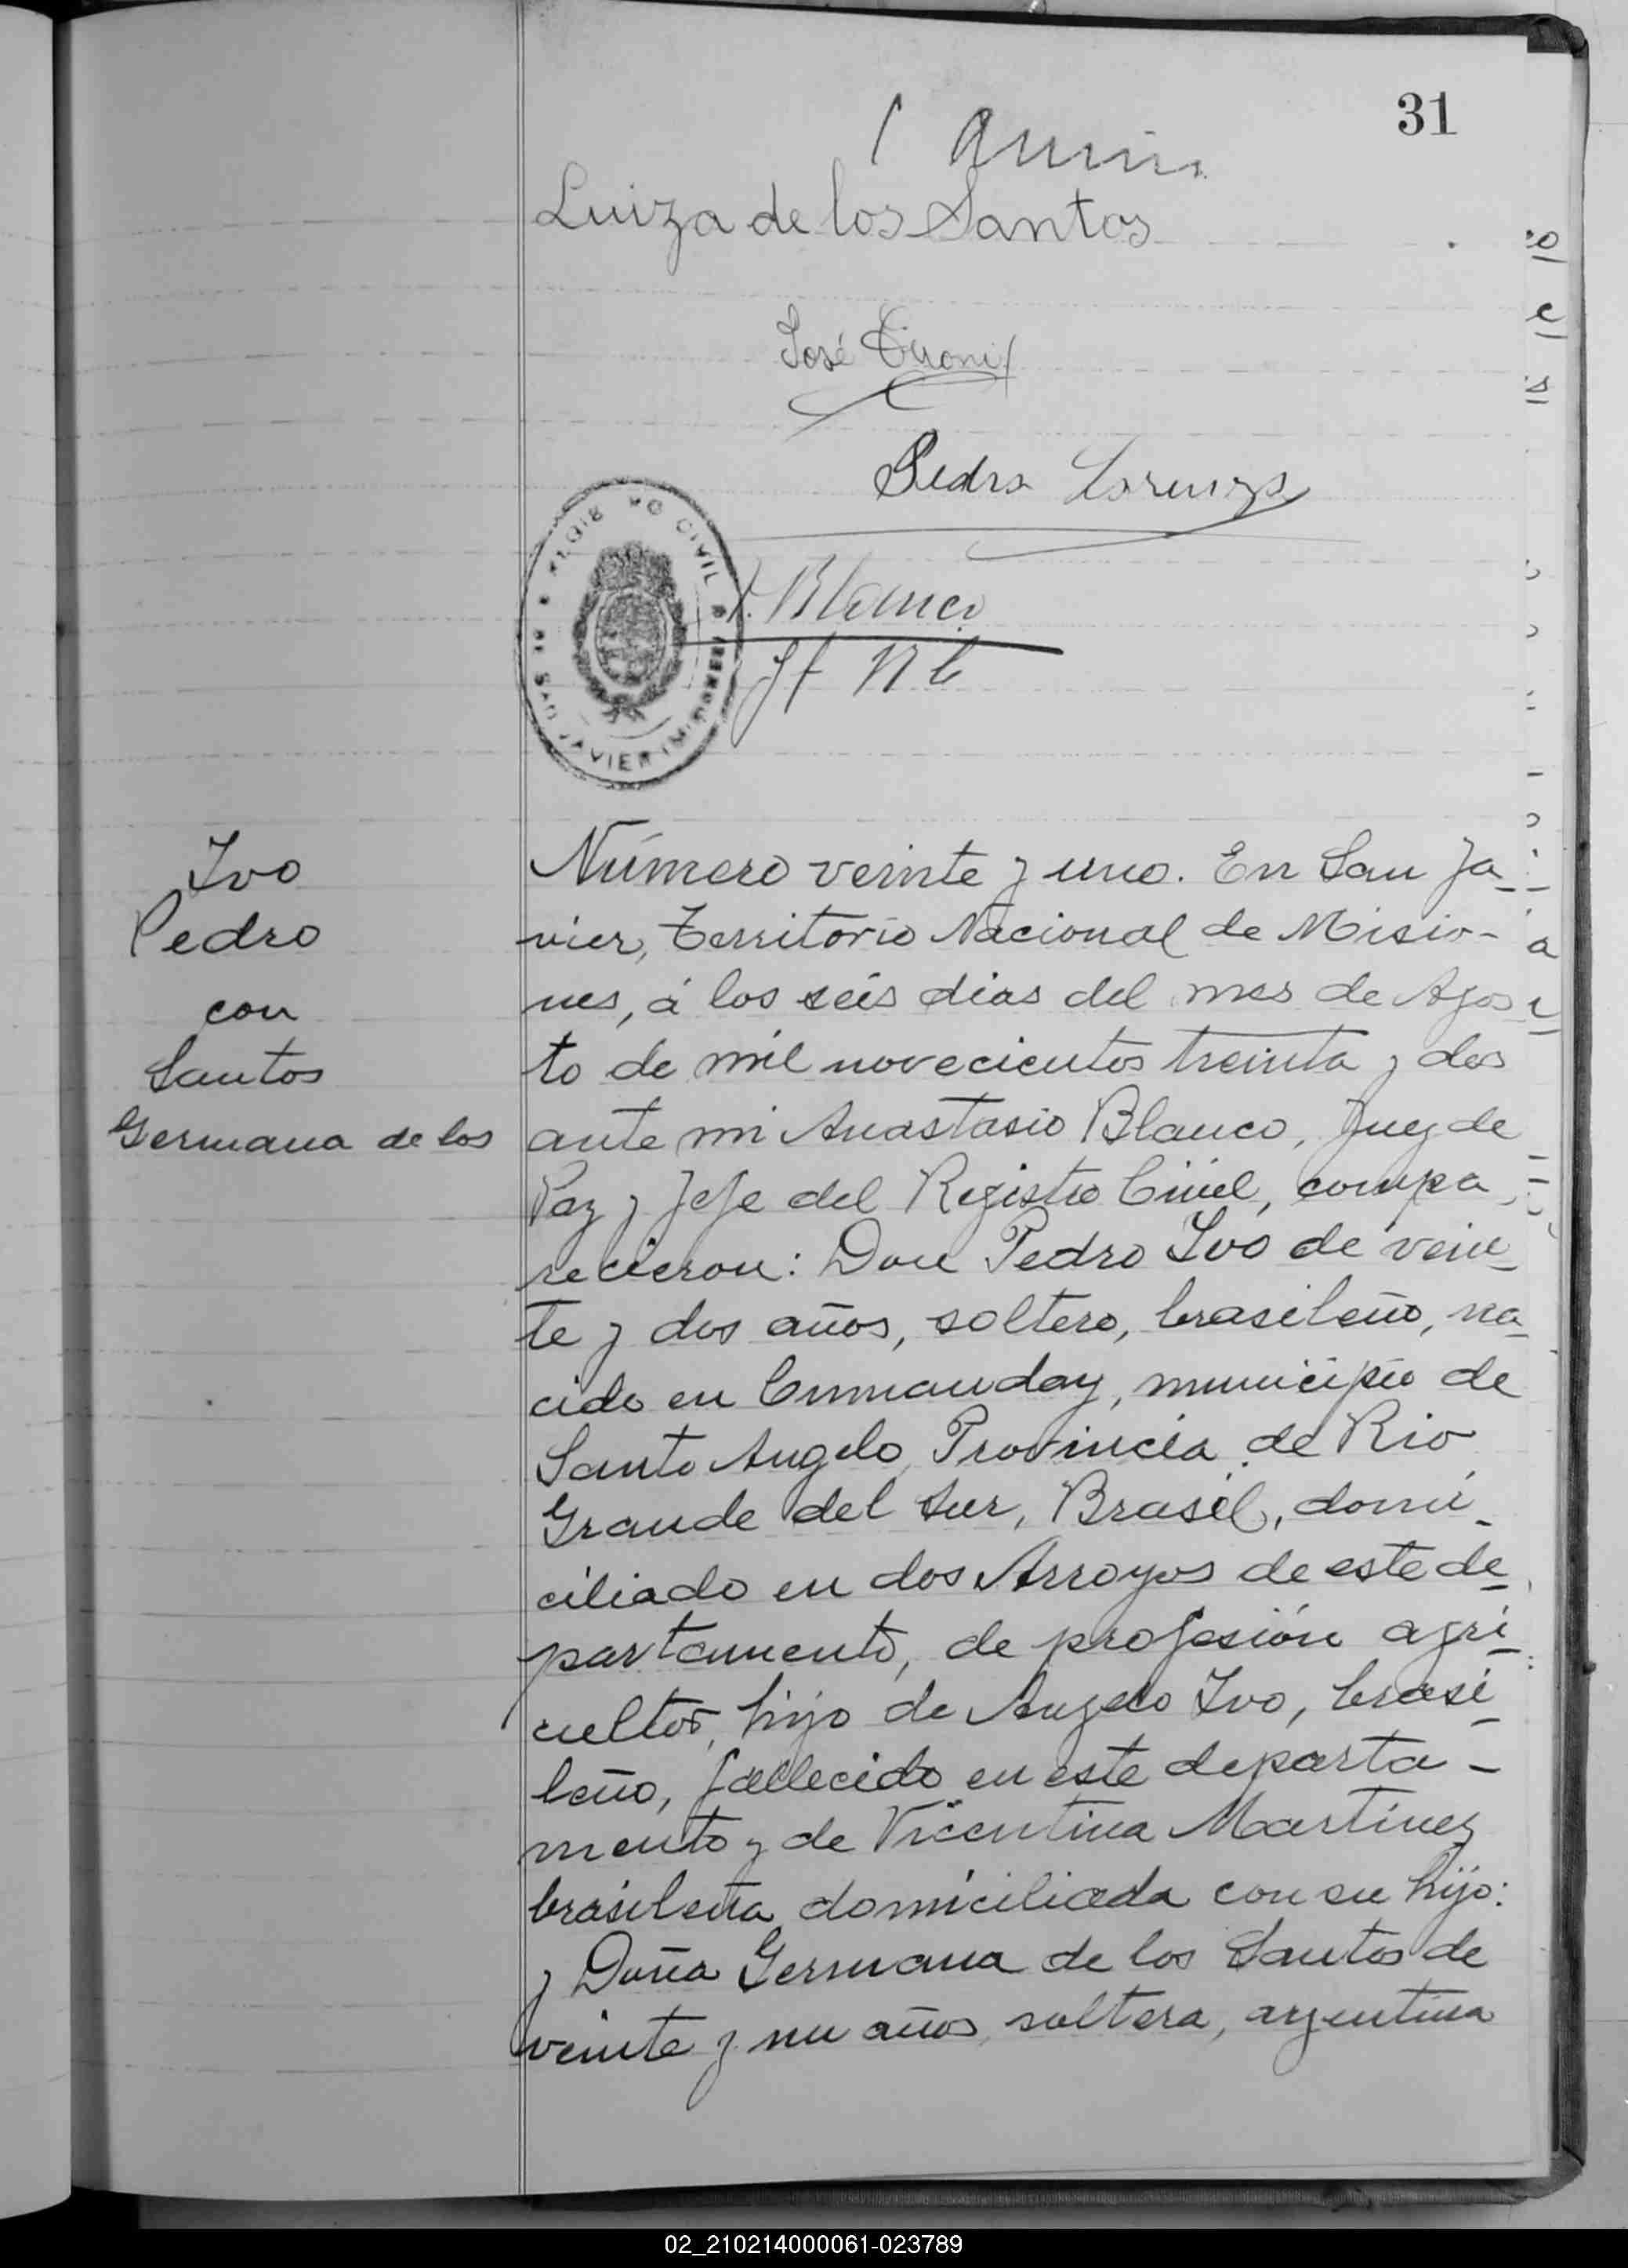 31
Luiza de los Santos
José
Pedro Lorenzo
REGISTRO CIVIL
DE SAN JAVIER (MISIONES)
Blanco
Ivo
Pedro
con
Santos
Germana de los
Número veinte y uno. En San Ja-
vier, Territorio Nacional de Misio-
nes, á los seis dias del mes de Agos
to de mil novecientos treinta y dos
ante mi Anastasio Blanco, Juez de
Paz y Jefe del Registro Civil, compa
recieron: Don Pedro Ivo de vein-
te y dos años, soltero, brasileño, na-
cido en Commanday, municipio de
Santo Angelo, Provincia de Rio
Grande del Sur, Brasil, domi-
ciliado en dos Arroyos de este de-
partamento, de profesión agri-
cultor, hijo de Angelo Ivo, brasi-
leño, fallecido en este departa-
mento y de Vicentina Martinez
brasileña domiciliada con su hijo:
y Doña Germana de los Santos de
veinte y un años, soltera, argentina
02_210214000061-023789